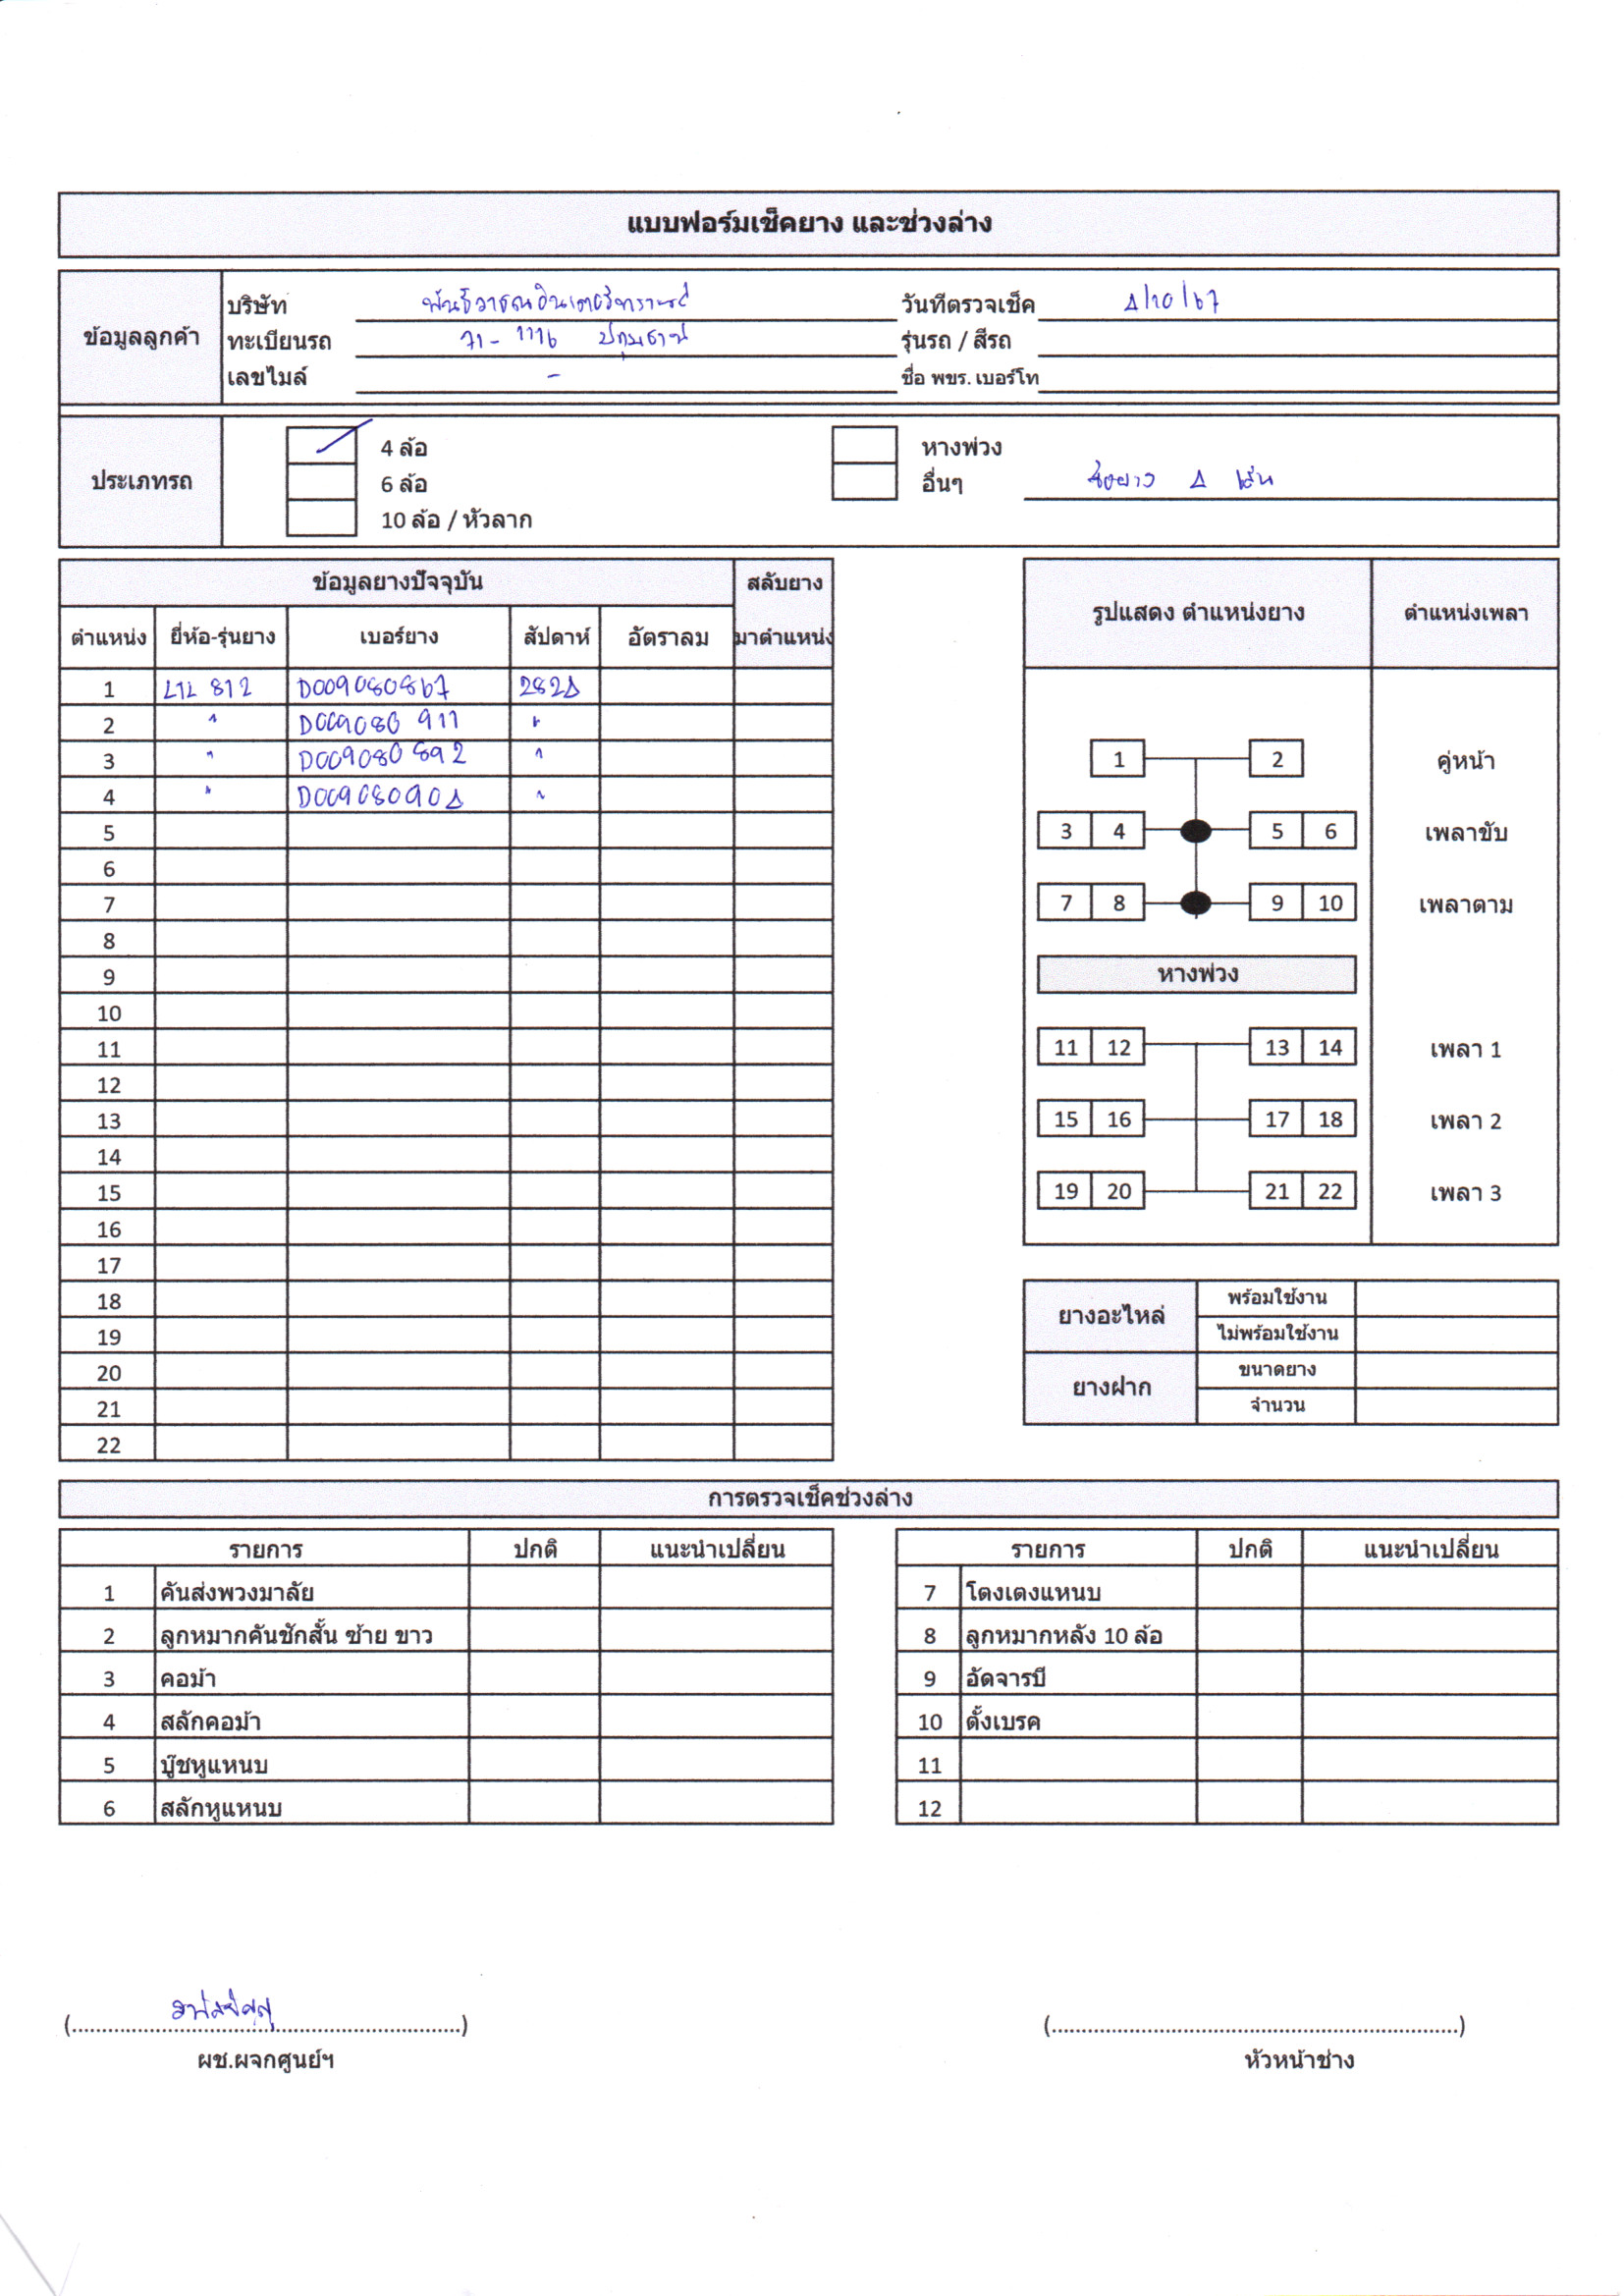 แบบฟอร์มเช็คยาง และช่วงล่าง
ข้อมูลลูกค้า
บริษัท
วันที่ตรวจเช็ค 4/10/67
ทะเบียนรถ 71-1116 ปทุมธานี
รุ่นรถ / สีรถ
เลขไมล์ -
ชื่อ พขร. เบอร์โท
ประเภทรถ
4 ล้อ
หางพ่วง
6 ล้อ
อื่นๆ ซื้อยาง 4 เส้น
10 ล้อ / หัวลาก
ข้อมูลยางปัจจุบัน สลับยาง
ตำแหน่ง ยี่ห้อ-รุ่นยาง เบอร์ยาง สัปดาห์ อัตราลม มาตำแหน่ง
1 LTL 812 D009080867 2824
2 " D009080 911 "
3 " D009080 892 "
4 " D009080904 "
5
6
7
8
9
10
11
12
13
14
15
16
17
18
19
20
21
22
รูปแสดง ตำแหน่งยาง ตำแหน่งเพลา
1 2 คู่หน้า
3 4 5 6 เพลาขับ
7 8 9 10 เพลาตาม
หางพ่วง
11 12 13 14 เพลา 1
15 16 17 18 เพลา 2
19 20 21 22 เพลา 3
ยางอะไหล่ พร้อมใช้งาน
ไม่พร้อมใช้งาน
ยางฝาก ขนาดยาง
จำนวน
การตรวจเช็คช่วงล่าง
รายการ ปกติ แนะนำเปลี่ยน
1 คันส่งพวงมาลัย
2 ลูกหมากคันชักสั้น ซ้าย ขาว
3 คอม้า
4 สลักคอม้า
5 บู๊ชหูแหนบ
6 สลักหูแหนบ
รายการ ปกติ แนะนำเปลี่ยน
7 โตงเตงแหนบ
8 ลูกหมากหลัง 10 ล้อ
9 อัดจารบี
10 ตั้งเบรค
11
12
(........................................)
ผช.ผจกศูนย์ฯ
(........................................)
หัวหน้าช่าง